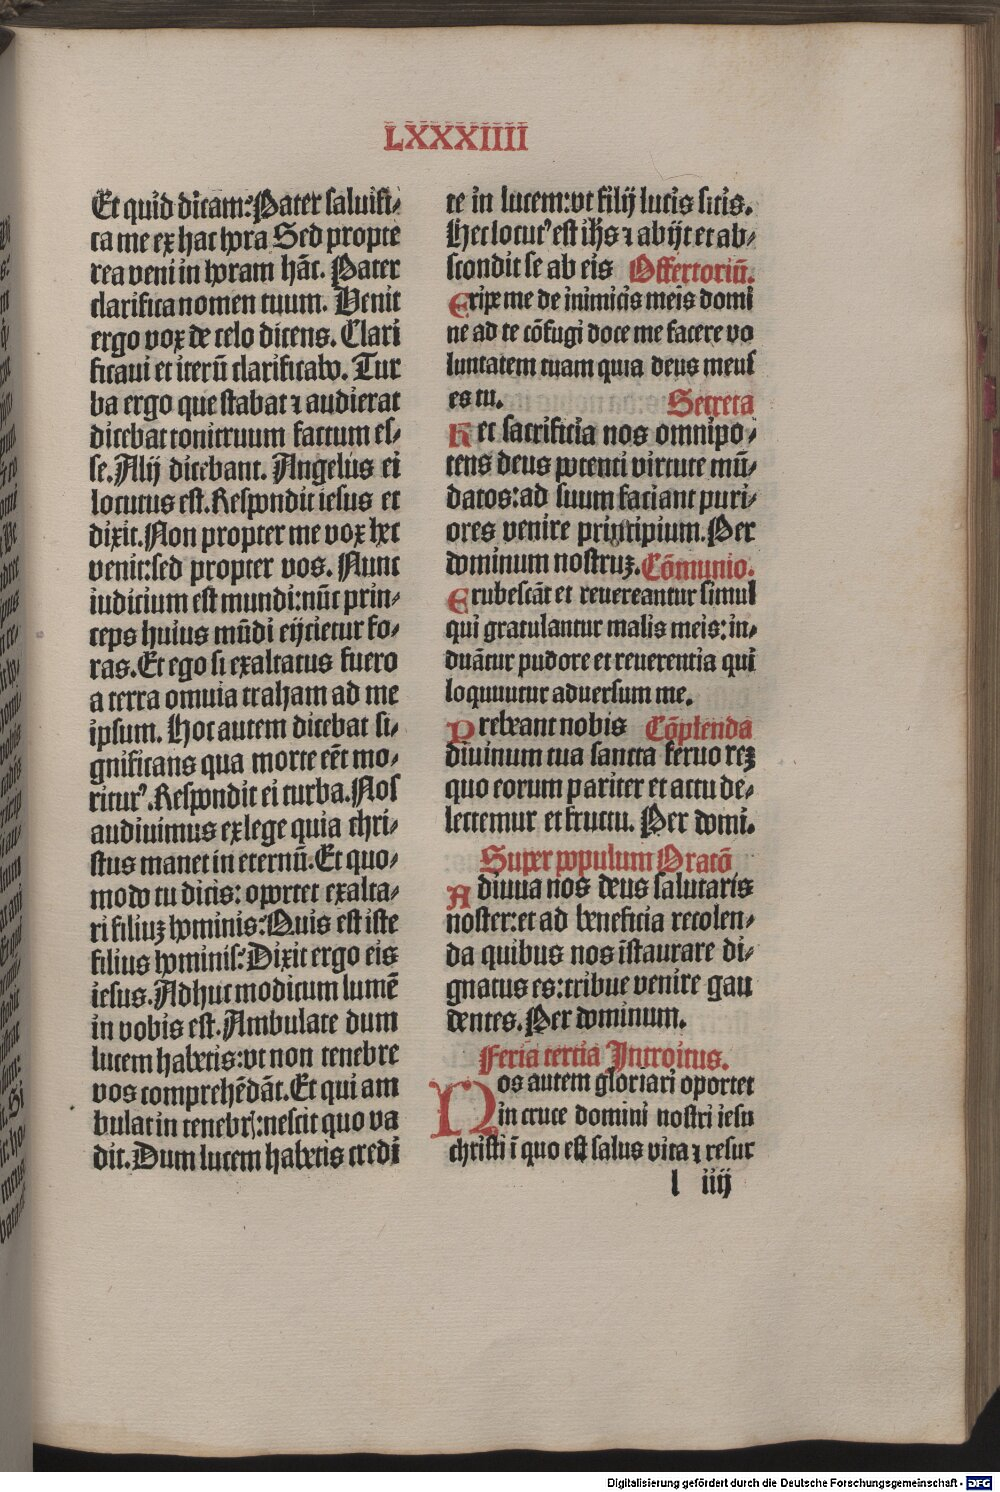 LXXXIIII
Et quid dicam: Pater saluifi-
ca me ex hac hora Sed propte
rea veni in horam hāc. Pater
clarifica nomen tuum. Venit
ergo vox de celo dicens. Clari
ficaui et iterū clarificabo. Tur
ba ergo que stabat ⁊ audierat
dicebat tonitruum factum es-
se. Alij dicebant. Angelus ei
locutus est. Respondit iesus et
dixit. Non propter me vox hec
venit: sed propter vos. Nunc
iudicium est mundi: nūc prin-
ceps huius mūdi eijcietur fo-
ras. Et ego si exaltatus fuero
a terra omuia traham ad me
ipsum. Hoc autem dicebat si-
gnificans qua morte eēt mo-
riturꝰ. Respondit ei turba. Nos
audiuimus ex lege quia chri-
stus manet in eternū. Et quo-
modo tu dicis: oportet exalta-
ri filiuꝫ hominis: Quis est iste
filius hominis: Dixit ergo eis
iesus. Adhuc modicum lumē
in vobis est. Ambulate dum
lucem habetis: vt non tenebre
vos comprehēdāt. Et qui am
bulat in tenebrꝭ: nescit quo va
dit. Dum lucem habetis credi
te in lucem: vt filij lucis sitis.
Hec locutꝰ est ihs ⁊ abijt et ab-
scondit se ab eis Offertoriū.
Eripe me de inimicis meis domi
ne ad te cōfugi doce me facere vo
luntatem tuam quia deus meus
es tu. Secreta
Hec sacrificia nos omnipo-
tens deus potenti virtute mū-
datos: ad suum faciant puri-
ores venire principium. Per
dominum nostruꝫ. Cōmunio.
Erubescāt et reuereantur simul
qui gratulantur malis meis: in-
duātur pudore et reuerentia qui
loquuutur aduersum me.
Prebeant nobis Cōplenda
diuinum tua sancta feruoreꝫ
quo eorum pariter et actu de-
lectemur et fructu. Per domi.
Super populum Oratō
Adiuua nos deus salutaris
noster: et ad beneficia recolen-
da quibus nos īstaurare di-
gnatus es: tribue venire gau
dentes. Per dominum.
Feria tertia Introitus.
Nos autem gloriari oportet
in cruce domini nostri iesu
christi ī quo est salus vita ⁊ resur
l iiij
Digitalisierung gefördert durch die Deutsche Forschungsgemeinschaft - DFG